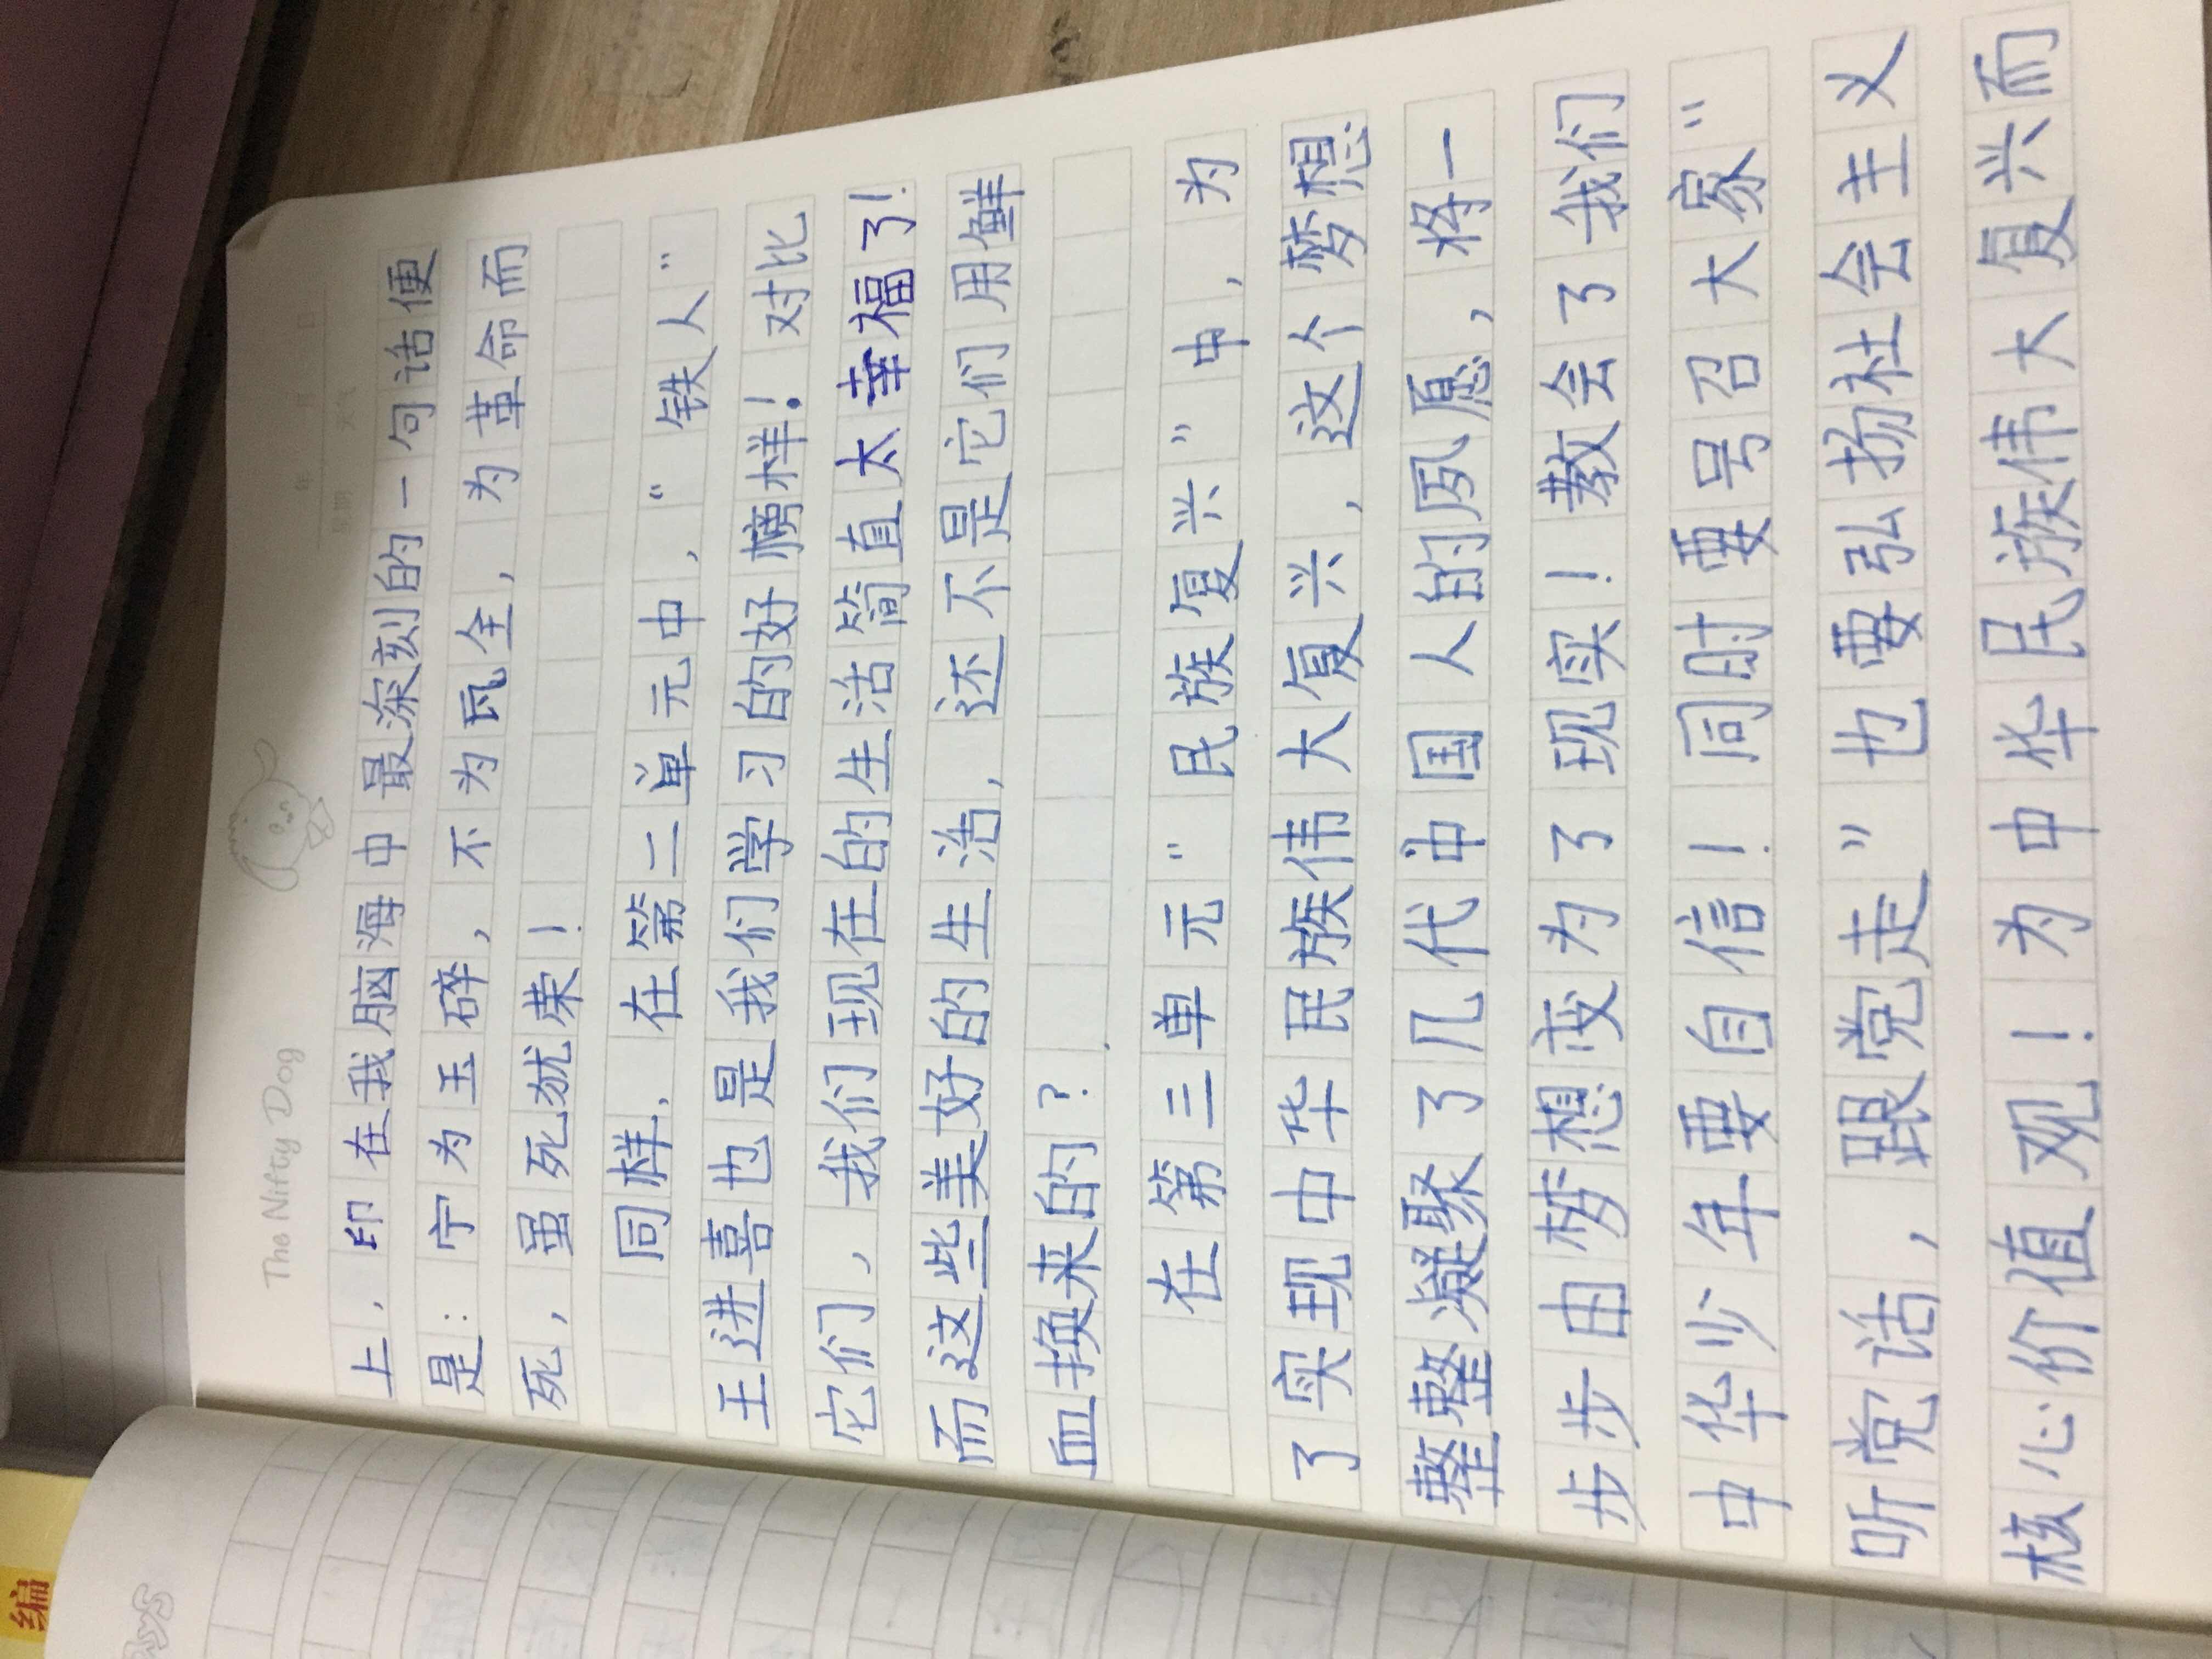 The Nifty Dog
年 月 日
星期 天气
上，印在我脑海中最深刻的一句话便
是：宁为玉碎，不为瓦全，为革命而
死，虽死犹荣！
同样，在第二单元中，“铁人”
王进喜也是我们学习的好榜样！对比
它们，我们现在的生活简直太幸福了！
而这些美好的生活，还不是它们用鲜
血换来的？
在第三单元“民族复兴”中，为
了实现中华民族伟大复兴，这个梦想
整整凝聚了几代中国人的夙愿，将一
步步由梦想变为了现实！教会了我们
中华少年要自信！同时要号召大家“
听党话，跟党走”也要弘扬社会主义
核心价值观！为中华民族伟大复兴而
编